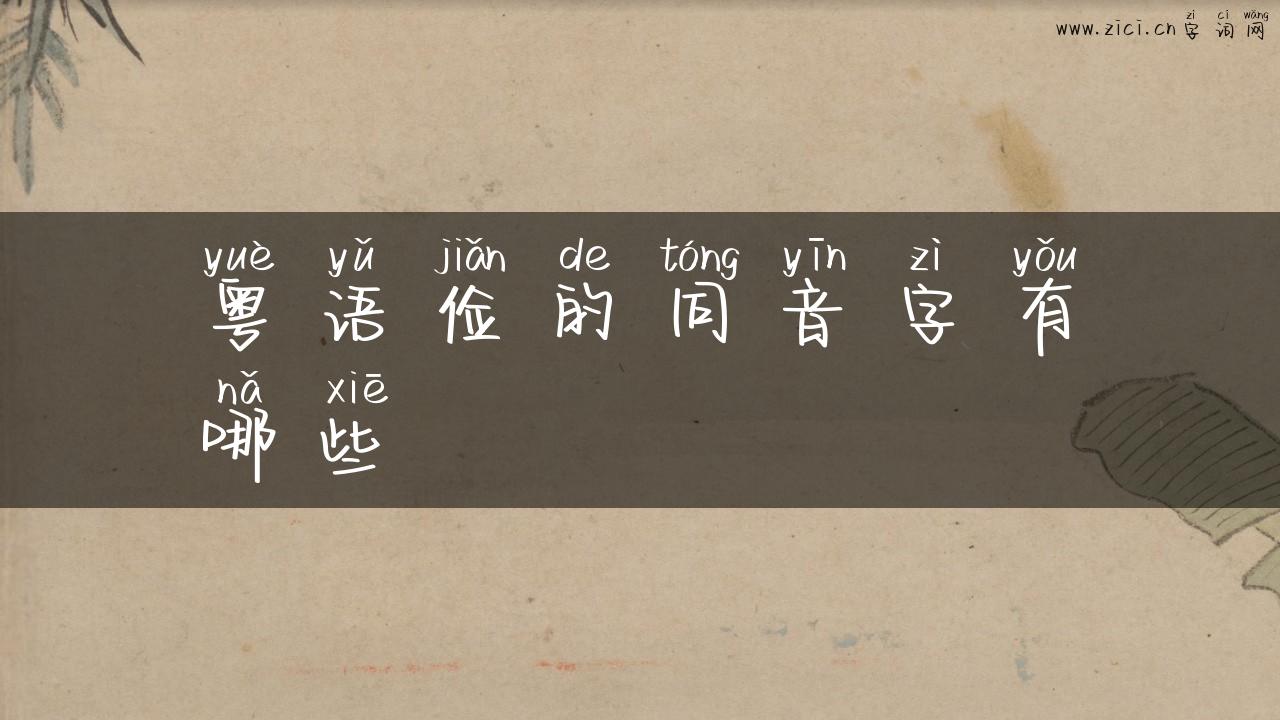 zì cí wǎng
www.zici.cn 字词网
yuè yǔ jiǎn de tóng yīn zì yǒu
粤语俭的同音字有
nǎ xiē
哪些